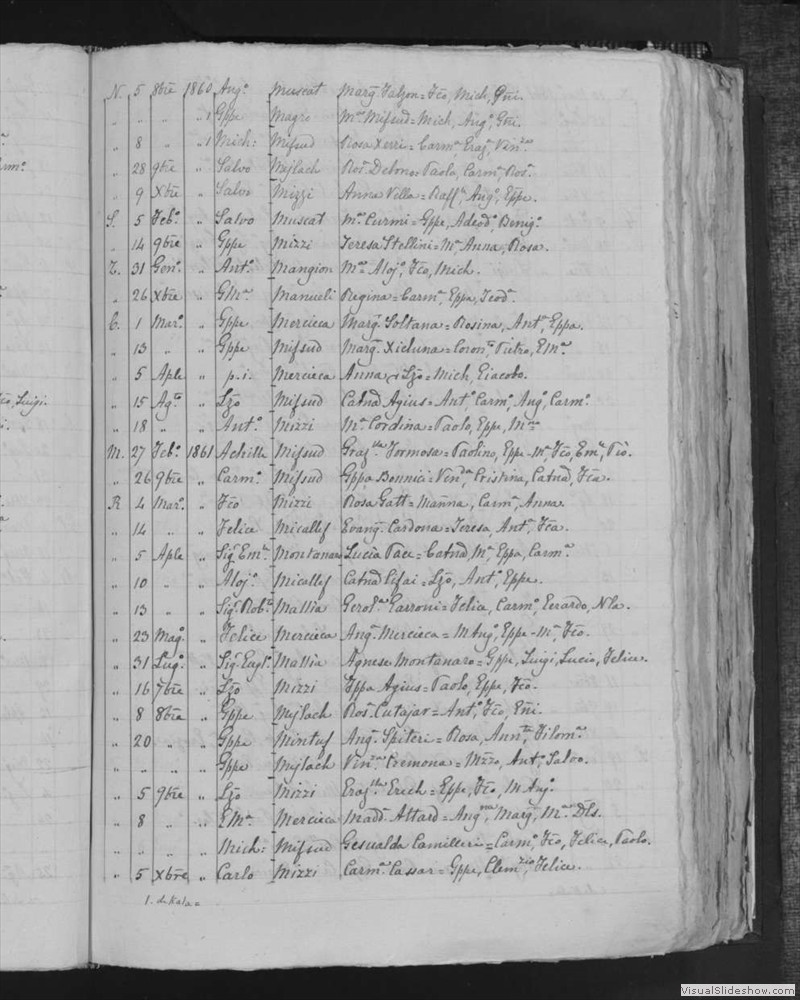 N. 5 8bre 1860 Angº Muscat Margª Falzon = Fco, Mich, Gni.
„ „ „ „ 1 Gppe Magro Mª Mifsud = Mich, Angº, Gni.
„ 8 „ „ 1 Mich: Mifsud Rosa Xerri = Carmª, Grazª, Vinzª
„ 28 9bre „ Salvo Mejlach Rosª Debono = Paolo, Carmª, Rosª
„ 9 Xbre „ Salvo Mizzi Anna Vella = Raffª, Angª, Eppe.
S. 5 Febº „ Salvo Muscat Mª Curmi = Gppe, Adeodº, Benigº
„ 14 9bre „ Gppe Mizzi Teresa Stellini = Mª Anna, Rosa.
Z. 31 Genº „ Antº Mangion Mª Alojº, Fco, Mich.
„ 26 Xbre „ GMª Manueli Regina = Carmª, Eppa, Teodª
C. 1 Marº „ Gppe Mercieca Margª Soltana = Rosina, Antª, Eppa.
„ 13 „ „ Gppe Mifsud Margª Xicluna = Coronª, Pietro, EMª
„ 5 Aple „ p.i. Mercieca Anna Lzo = Mich, Giacobo.
„ 15 Agº „ Lzo Mifsud Catnª Agius = Antº, Carmª, Angª, Carmº
„ 18 „ „ Antº Mizzi Mª Cordina = Paolo, Eppe, Mª
M. 27 Febº 1861 Achille Mifsud Grazˡª Formosa = Paolino, Eppe-Mª, Fco, Emª, Pio.
„ 26 9bre „ Carmº Mifsud Gppa Bonnici = Venˡª, Cristina, Catnª, Fca.
R 4 Marº „ Fco Mizzi Rosa Gatt = Marina, Carmª, Anna.
„ 14 „ „ Felice Micallef Evangª Cardona = Teresa, Antª, Fca.
„ 5 Aple „ Sigʳ Emˡᵉ Montanaro Lucia Pace = Catnª, Mª, Eppa, Carmª
„ 10 „ „ Alojº Micallef Catnª Cefai = Lzo, Antº, Eppe.
„ 13 „ „ Sigʳ Robˡᵒ Mallia Gerolˡª Garroni = Felice, Carmº, Gerardo, Nla.
„ 23 Magº „ Felice Mercieca Angª Mercieca = M Angª, Eppe-Mª, Fco.
„ 31 Lugº „ Sigʳ Mallia Agnese Montanaro = Gppe, Luigi, Lucio, Felice.
„ 16 7bre „ Lzo Mizzi Fppa Agius = Paolo, Eppe, Fco.
„ 8 8bre „ Gppe Mejlach Rosª Cutajar = Antº, Fco, Eni.
„ 20 „ „ Gppe Mintuf Angª Spiteri = Rosa, Annˡª, Filomª
„ „ „ „ Gppe Mejlach Vinzª Cremona = Mzzo, Antº, Salvo.
„ 5 9bre „ Lzo Mizzi Grazˡª Grech = Eppe, Fco, M Angª
„ 8 „ „ EMˡ Mercieca Maddª Attard = Angˡª, Margª, Mª Dls.
„ „ „ „ Mich: Mifsud Gesualda Camilleri = Carmº, Fco, Felice, Paolo.
„ 5 Xbre „ Carlo Mizzi Carmª Cassar = Gppe, Clemˡᵉ, Felice.
1. di Kala =
Luigi.
VisualSlideshow.com